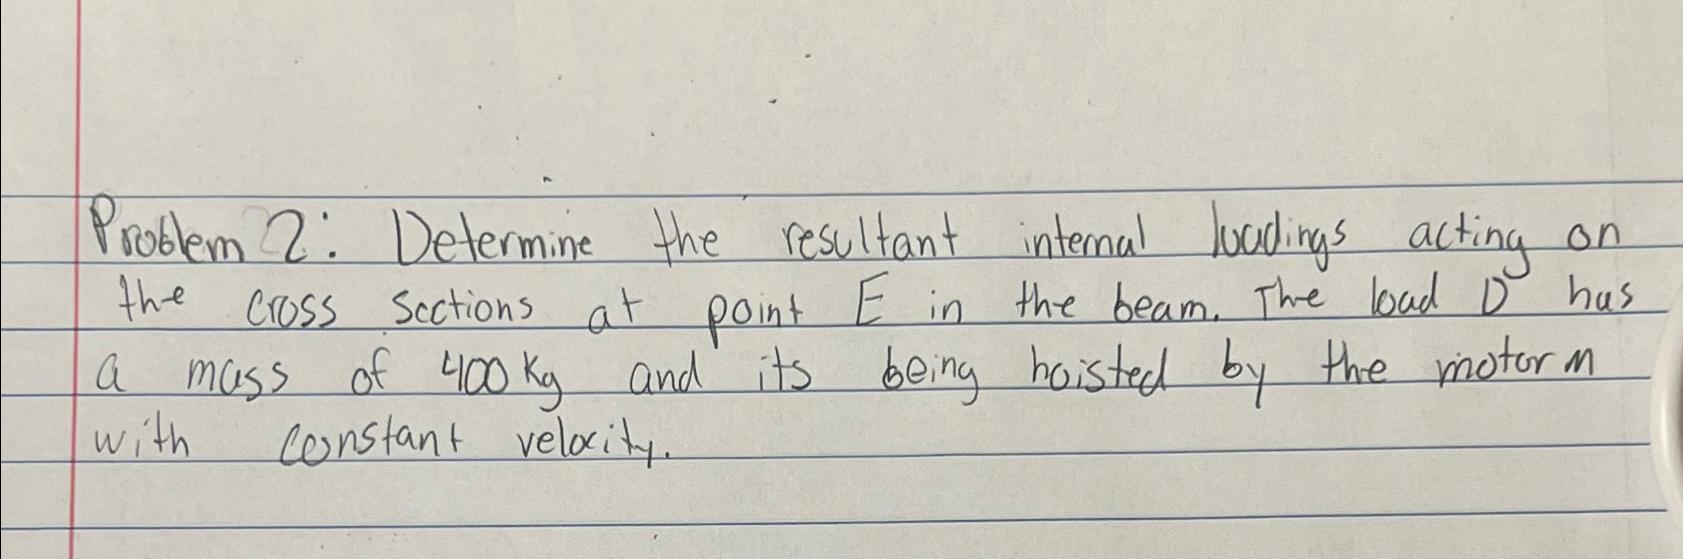 Problem 2: Determine the resultant internal loadings acting on
the cross sections at point E in the beam. The load D has
a mass of 400 Kg and its being hoisted by the motor M
with constant velocity.